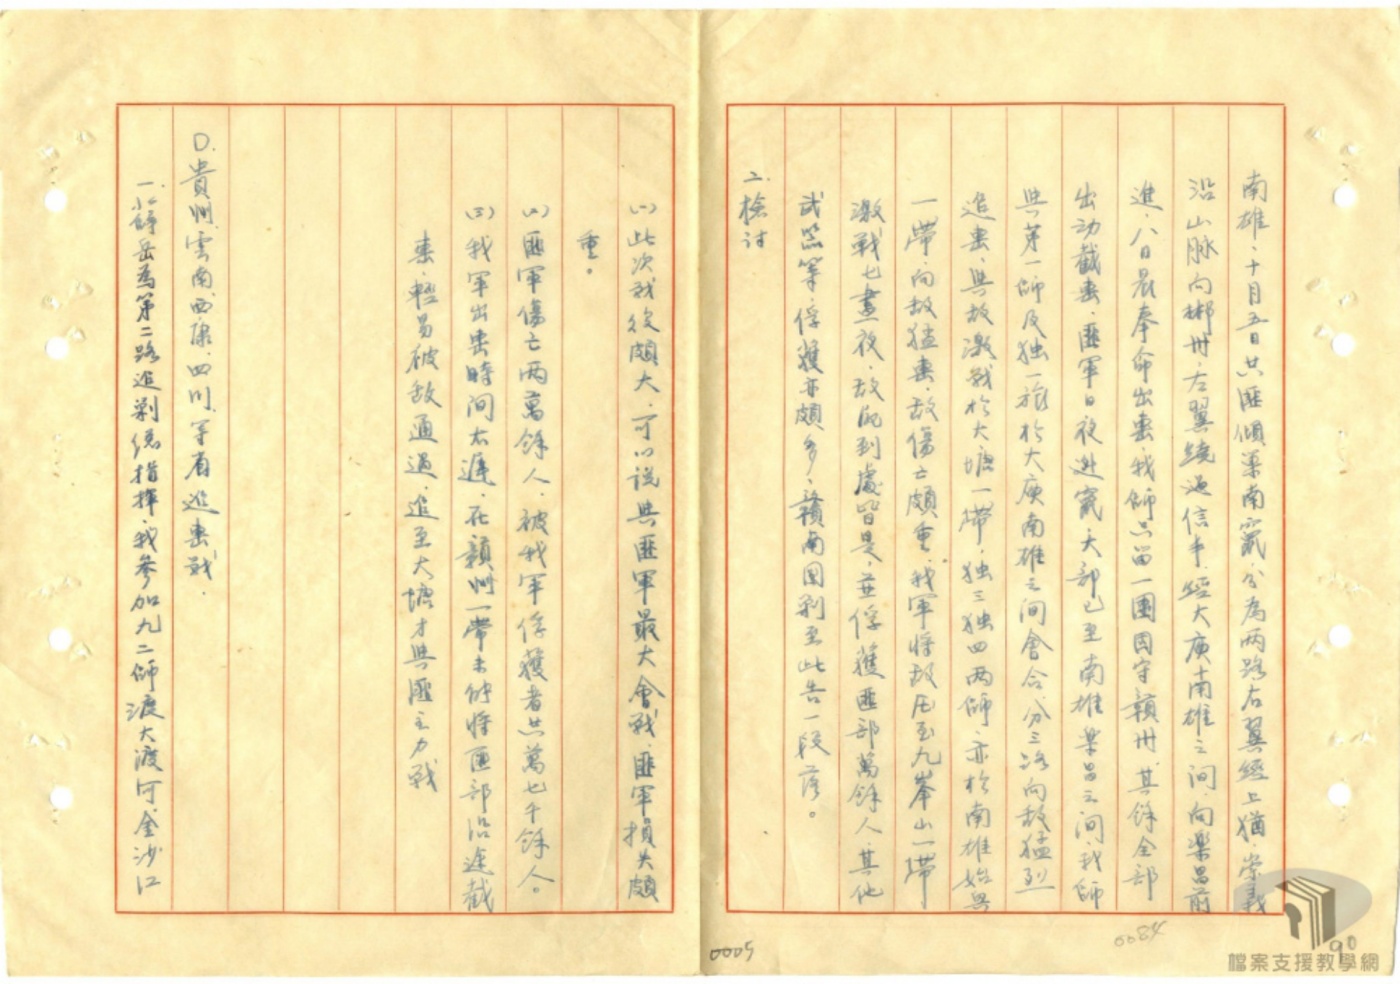 南雄、十月五日共匪傾巢南竄、分為兩路右翼經上猶、崇義
沿山脈向郴州、左翼繞過信丰、經大庾南雄之間、向樂昌前
進、八日晨奉命出击、我師只留一團固守贛州、其餘全部
出动截击、匪軍日夜逃竄大部已至南雄樂昌之间、我師
與第一師及独一旅於大庾南雄之间會合、分三路向敌猛烈
追击、與敌激战於大塘一帶、独三独四两師、亦於南雄始興
一帶、向敌猛击、敌傷亡頗重、我軍将敌压至九峯山一帶
激戰七晝夜、敌屍到處皆是、並俘獲匪部萬餘人、其他
武器等俘獲亦頗多、贛南圍剿至此告一段落。
二、檢讨
(一)此次战役頗大、可以说與匪軍最大會戰、匪軍損失頗
重。
(二)匪軍傷亡两萬餘人、被我軍俘獲者共萬七千餘人。
(三)我軍出击時间太遲、在贛州一帶未能将匪部沿途截
击、輕易被敌通過、追至大塘才與匪主力戰
D.貴州、雲南、西康、四川、等省追击战.
一、薛岳為第二路追剿總指揮、我參加九二師渡大渡河、金沙江
0005
0084
90
檔案支援教學網